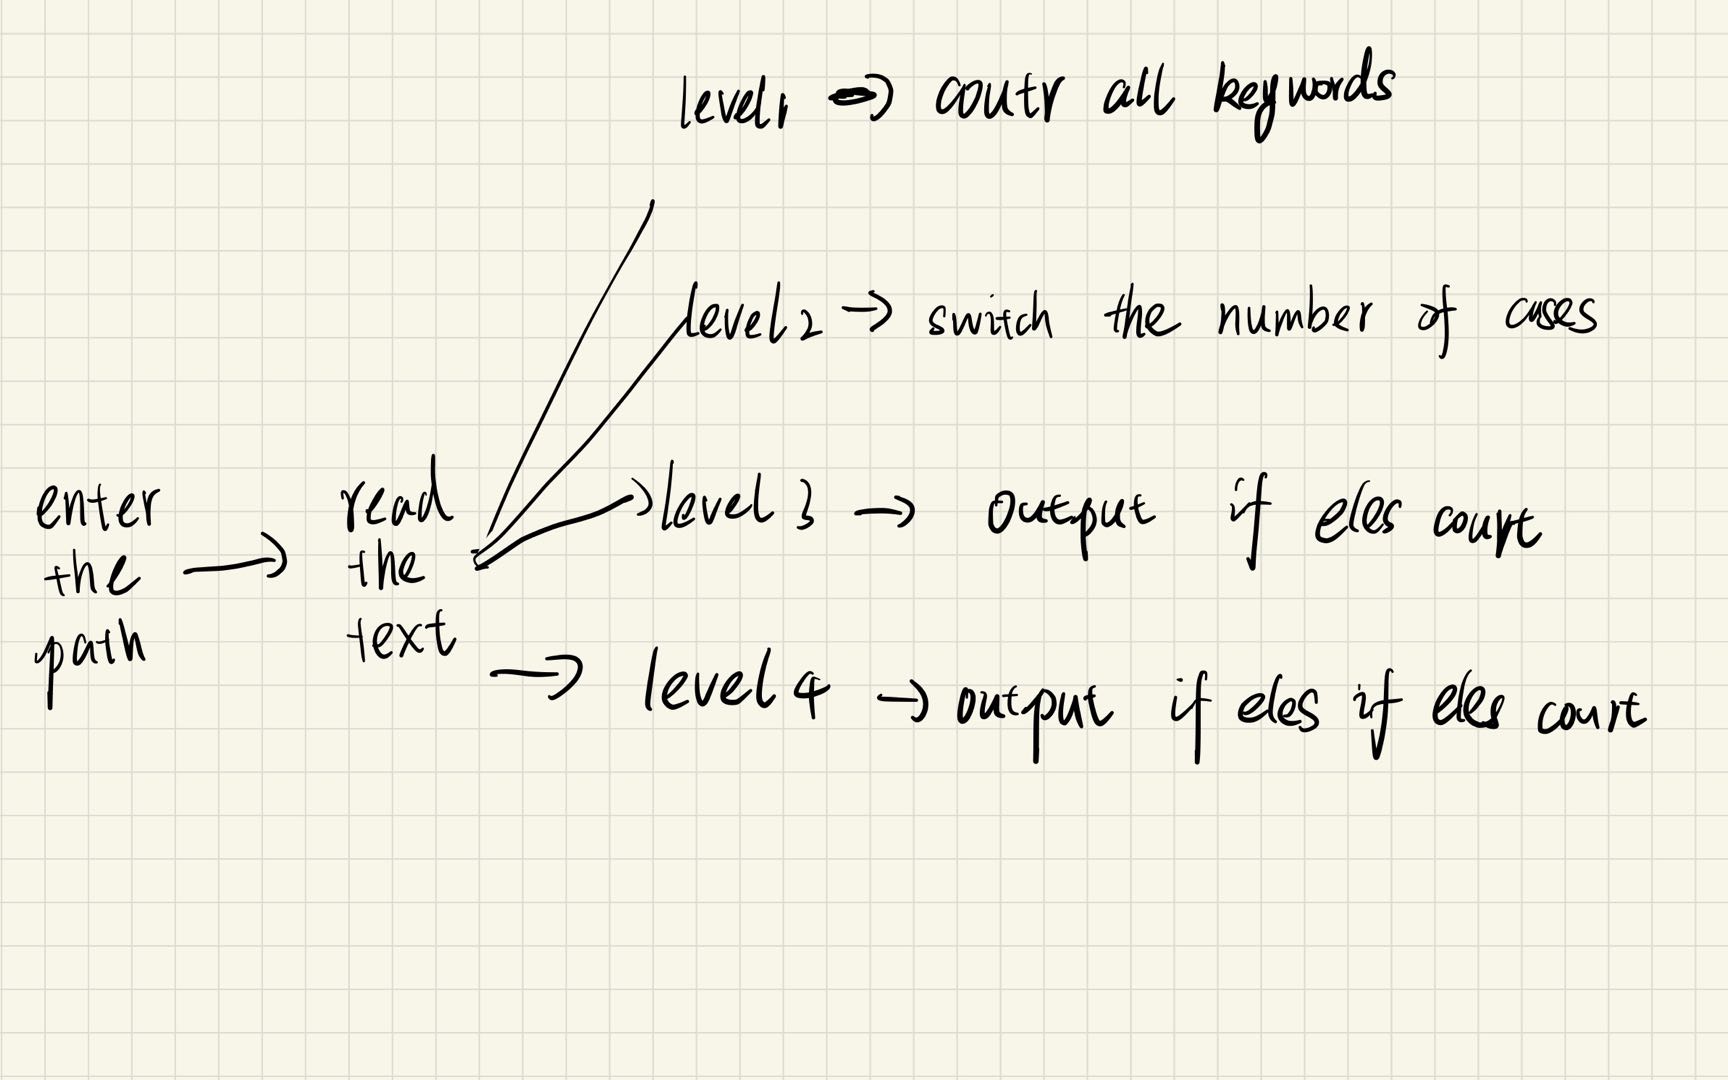 level1 → coutr all keywords
level2 → switch the number of cases
enter
the
path
→
read
the
text
level 3 → output if eles court
→ level 4 → output if eles if eles court